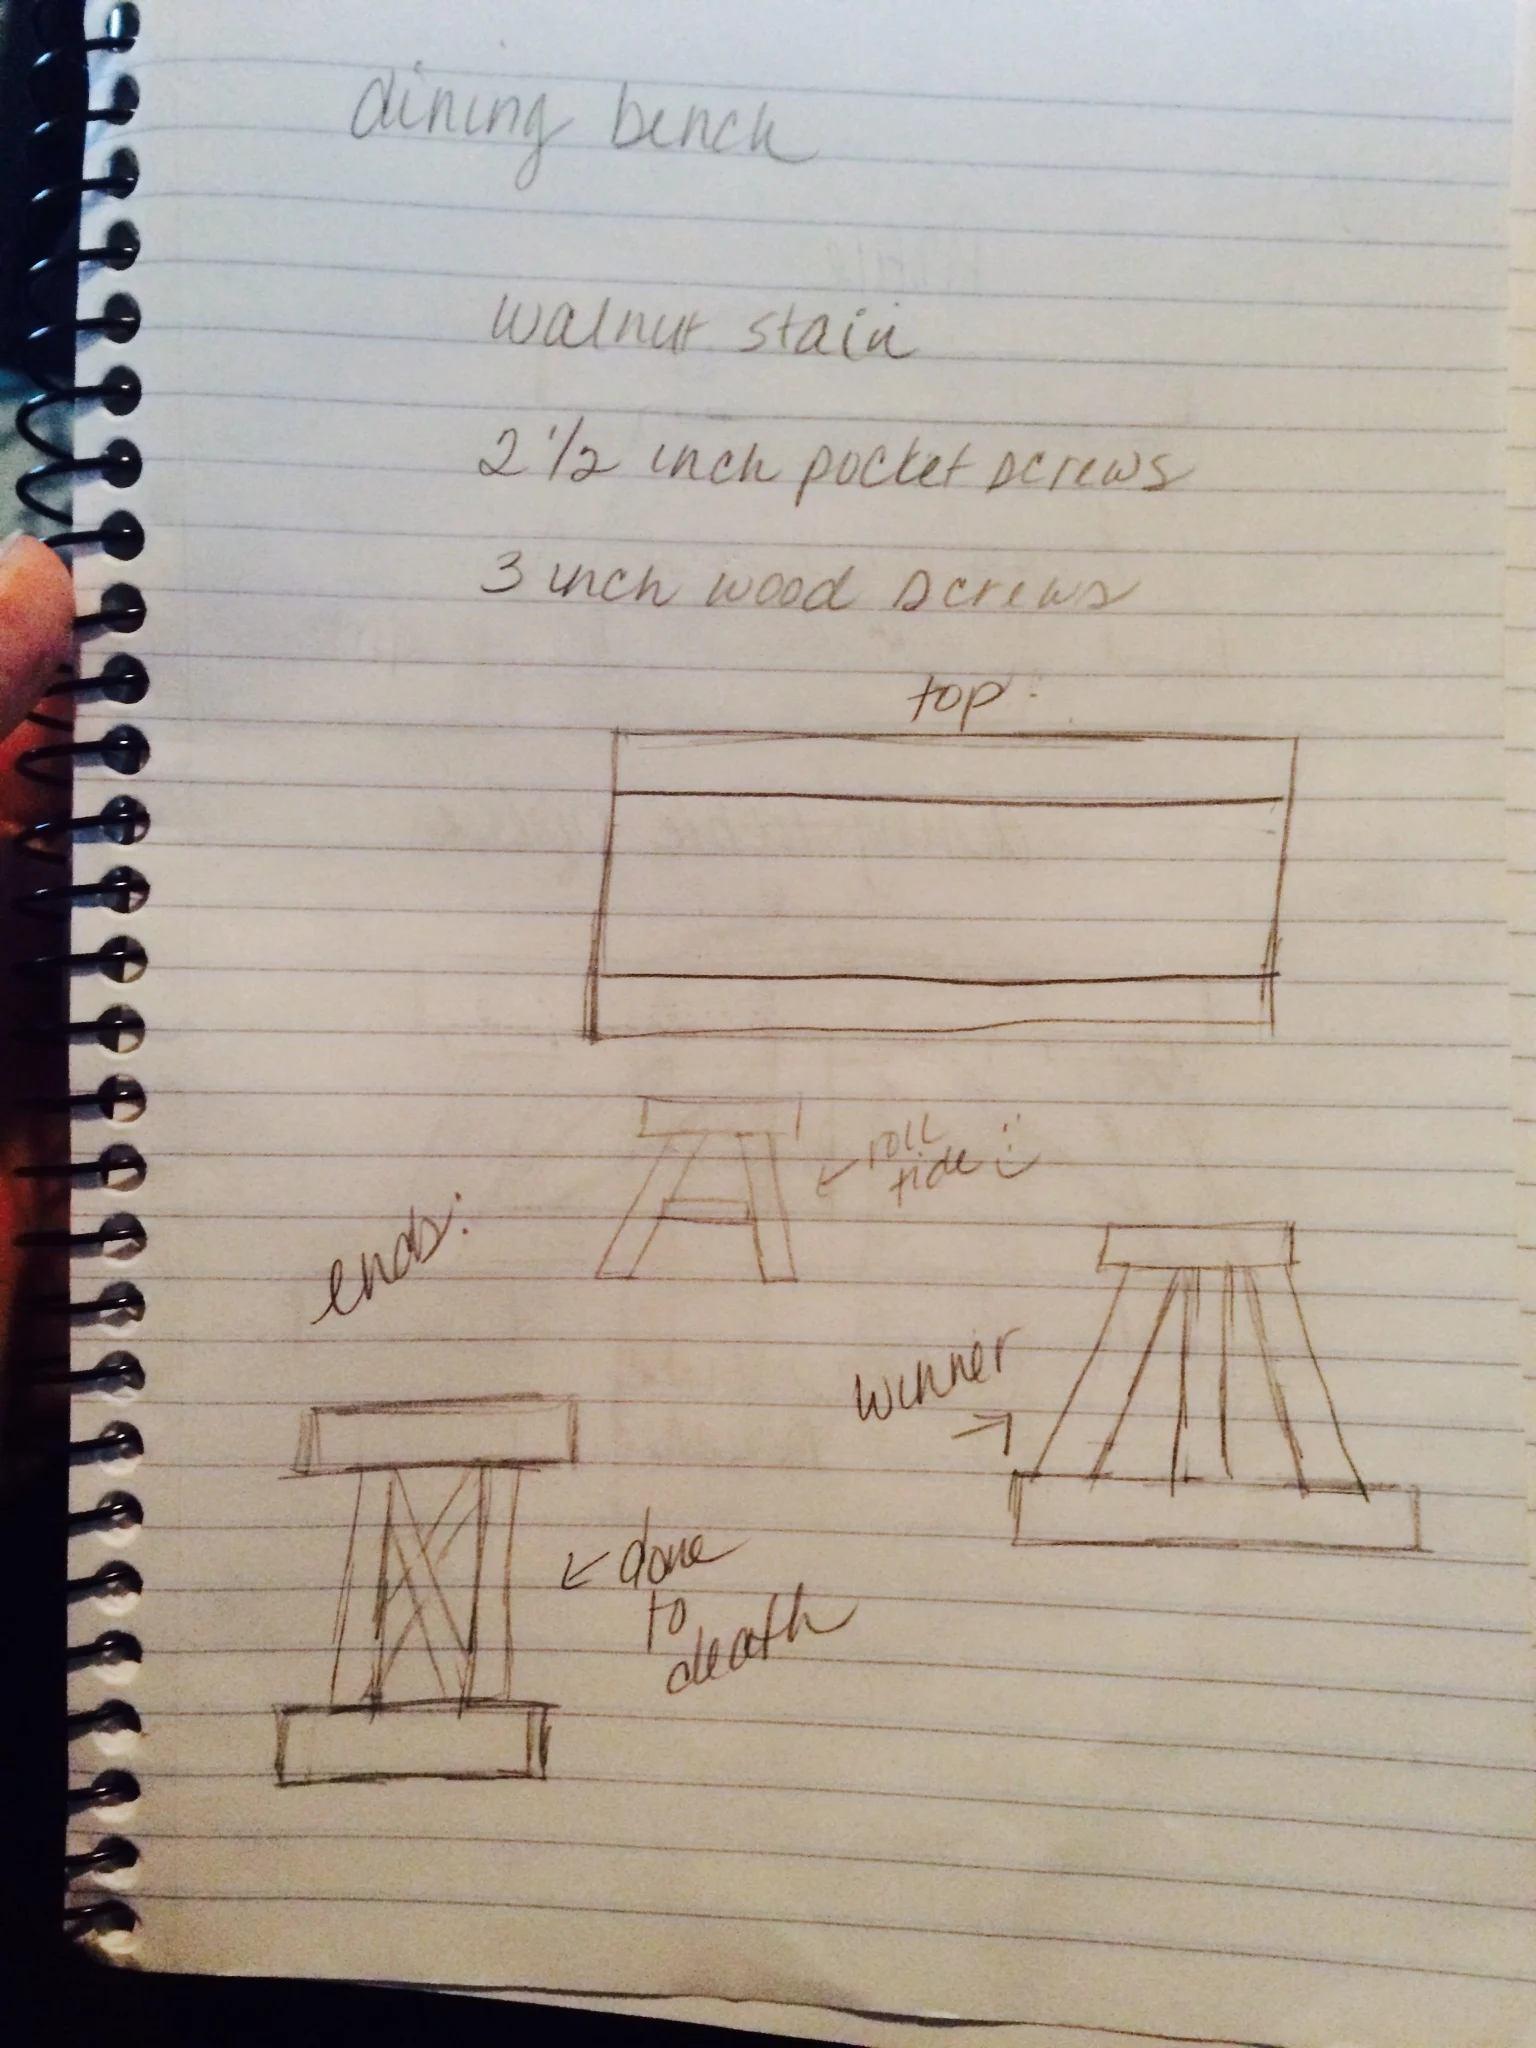 dining bench
walnut stain
2 1/2 inch pocket screws
3 inch wood screws
top:
ends:
← roll
tide :)
winner
→
← done
to
death